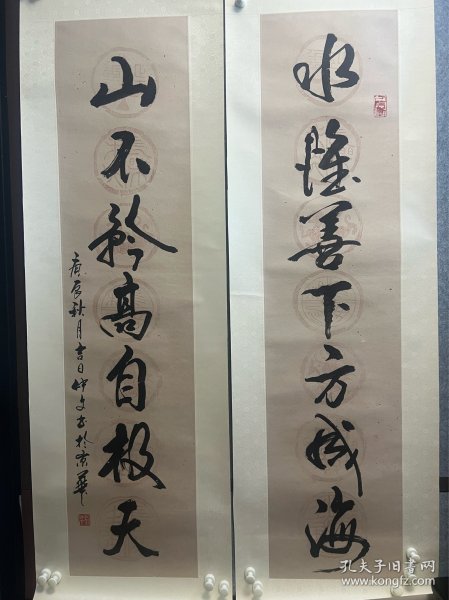 水惟善下方成海
山不矜高自极天
庚辰秋月吉日仲文书於京華
孔夫子旧书网
www.kongfz.com